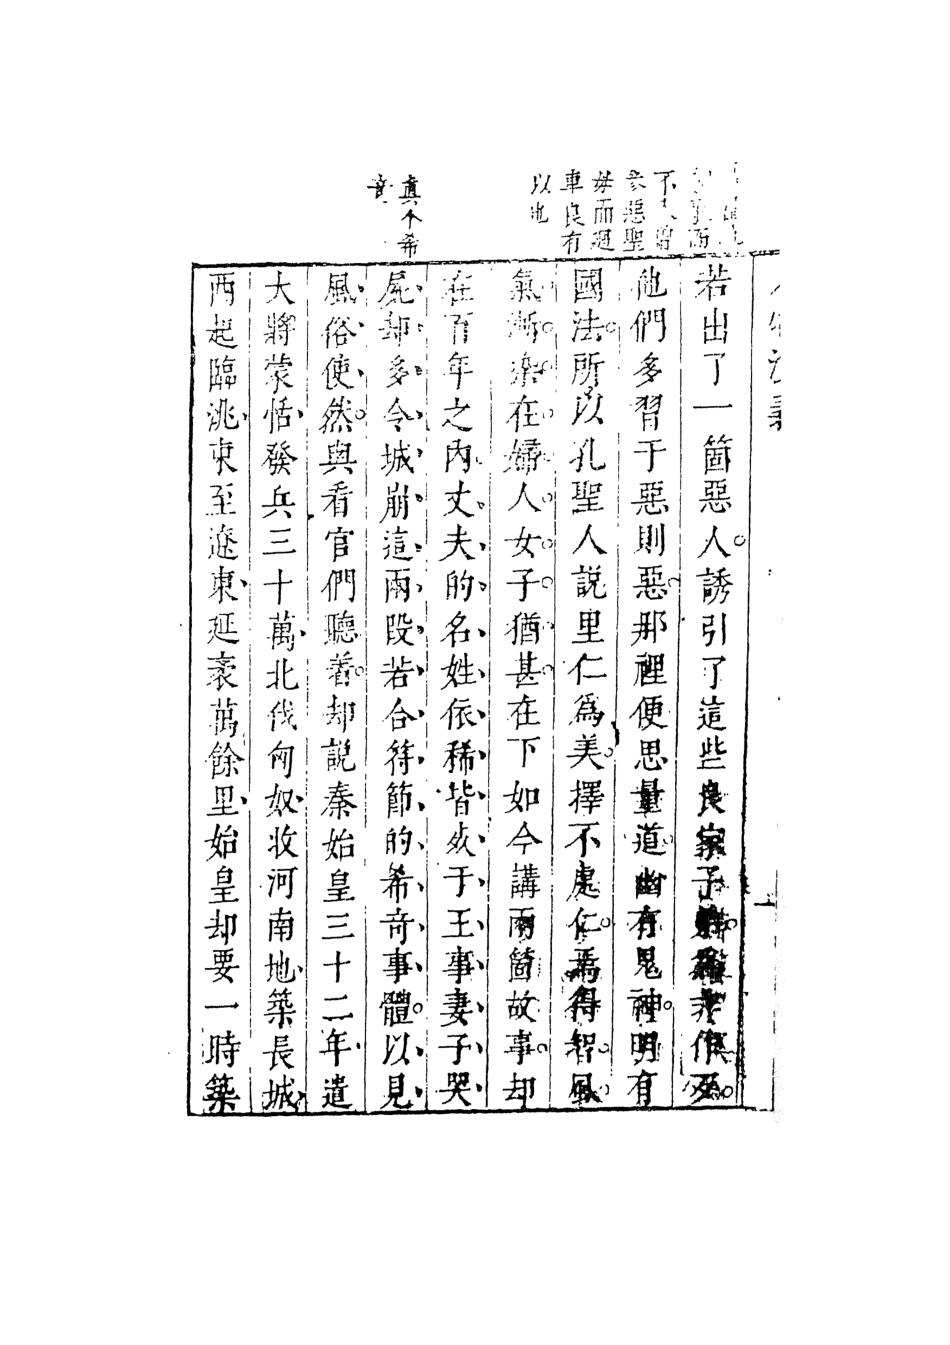 不
惡聖
母而廻
車良有
以也
真个希
奇
若出了一箇惡人誘引了這些良家子非作歹
他們多習于惡則惡那裡便思量道幽有鬼神明有
國法所以孔聖人說里仁爲美擇不處仁焉得智風
氣漸染在婦人女子猶甚在下如今講兩箇故事却
在百年之內丈夫的名姓依稀皆歿于王事妻子哭
屍却多令城崩這兩段若合符節的希奇事體以見
風俗使然與看官們聽着却說秦始皇三十二年遣
大將蒙恬發兵三十萬北伐匈奴收河南地築長城
西起臨洮東至遼東延袤萬餘里始皇却要一時築